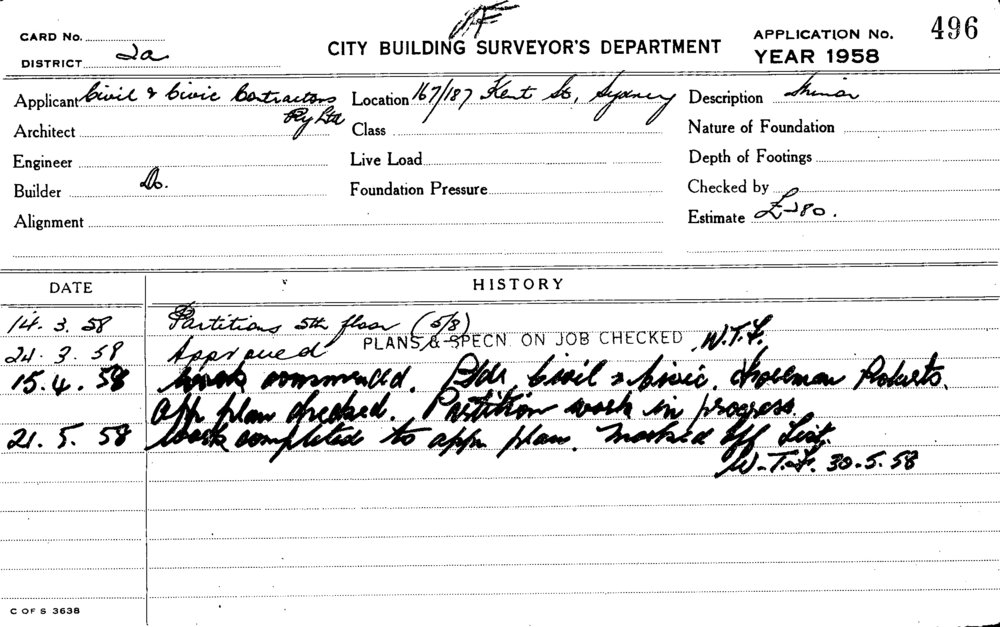 CARD No.
DISTRICT 2a
CITY BUILDING SURVEYOR'S DEPARTMENT
APPLICATION No. 496
YEAR 1958
Applicant Civil & Civic Contractors Pty Ltd
Location 167/187 Kent St, Sydney
Description Minor
Architect
Class
Nature of Foundation
Engineer
Live Load
Depth of Footings
Builder Do.
Foundation Pressure
Checked by
Alignment
Estimate £ 80.
DATE HISTORY
14. 3. 58 Partitions 5th floor (5/8)
24. 3. 58 Approved PLANS & SPECN. ON JOB CHECKED W.T.F.
15. 4. 58 Work commenced. Bldr, Civil & Civic. Foreman Roberts.
App. plan checked. Partition work in progress.
21. 5. 58 Work completed to appn plan. Marked off List.
W.T.F. 30.5.58
C OF S 3638